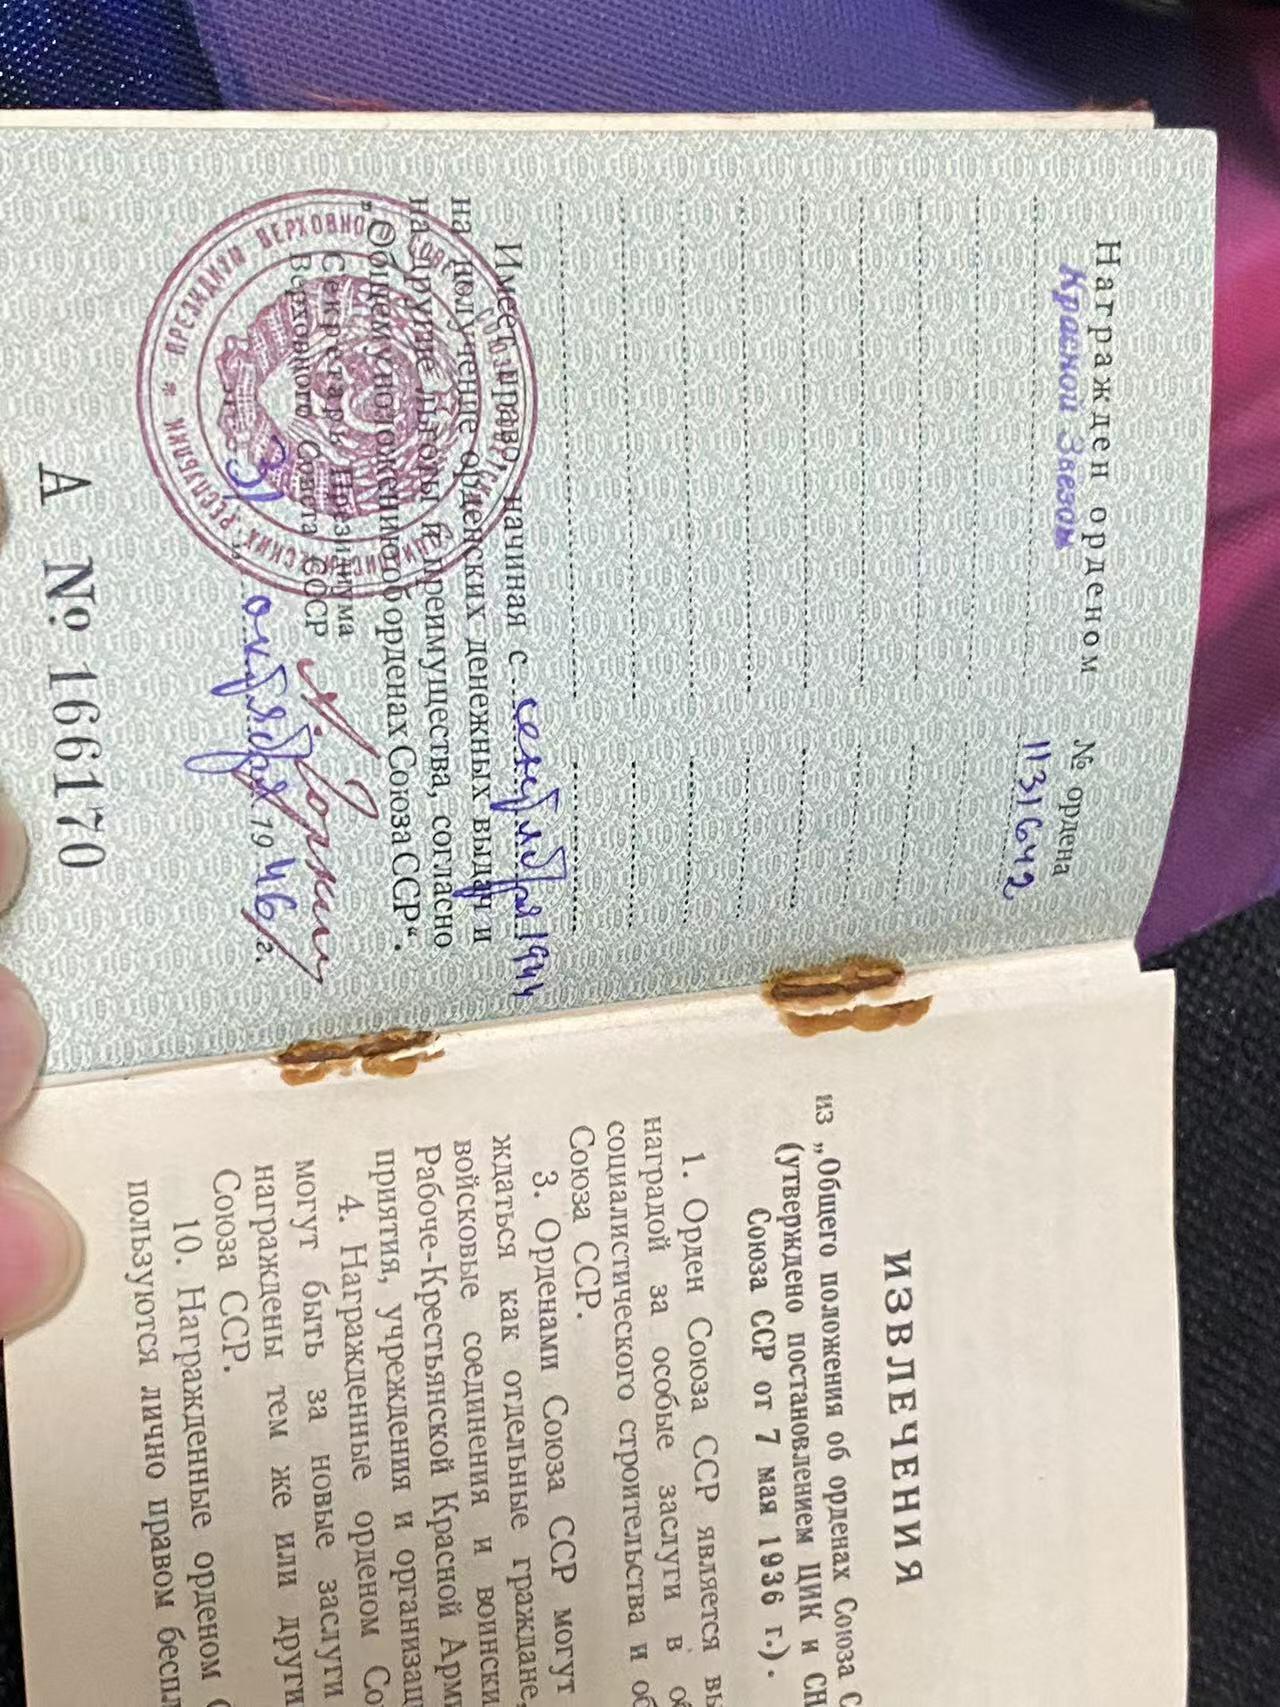 Награжден орденом № ордена
Красной Звезды 1131642
Имеет право, начиная с сентября 1944
на получение орденских денежных выдач и
на другие льготы и преимущества, согласно
„Общему положению об орденах Союза ССР“.
Секретарь Президиума
Верховного Совета СССР
ПРЕЗИДИУМ ВЕРХОВНОГО СОВЕТА СОЮЗА РЕСПУБЛИК
„31“ октября 1946 г.
А № 166170
ИЗВЛЕЧЕНИЯ
из „Общего положения об орденах Союза С
(утверждено постановлением ЦИК и СН
Союза ССР от 7 мая 1936 г.).
1. Орден Союза ССР является вы
наградой за особые заслуги в об
социалистического строительства и об
Союза ССР.
3. Орденами Союза ССР могут
ждаться как отдельные граждане,
войсковые соединения и воински
Рабоче-Крестьянской Красной Арми
приятия, учреждения и организац
4. Награжденные орденом Со
могут быть за новые заслуги
награждены тем же или други
Союза ССР.
10. Награжденные орденом С
пользуются лично правом беспл